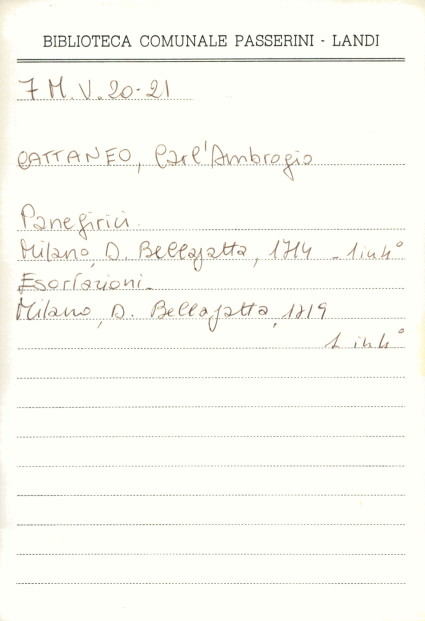 BIBLIOTECA COMUNALE PASSERINI - LANDI
7 M.V. 20-21
CATTANEO, Carl'Ambrogio
Panegirici.
Milano, D. Bellagatta, 1714 - 1 in 4°
Esortazioni.
Milano, D. Bellagatta, 1719
1 in 4°